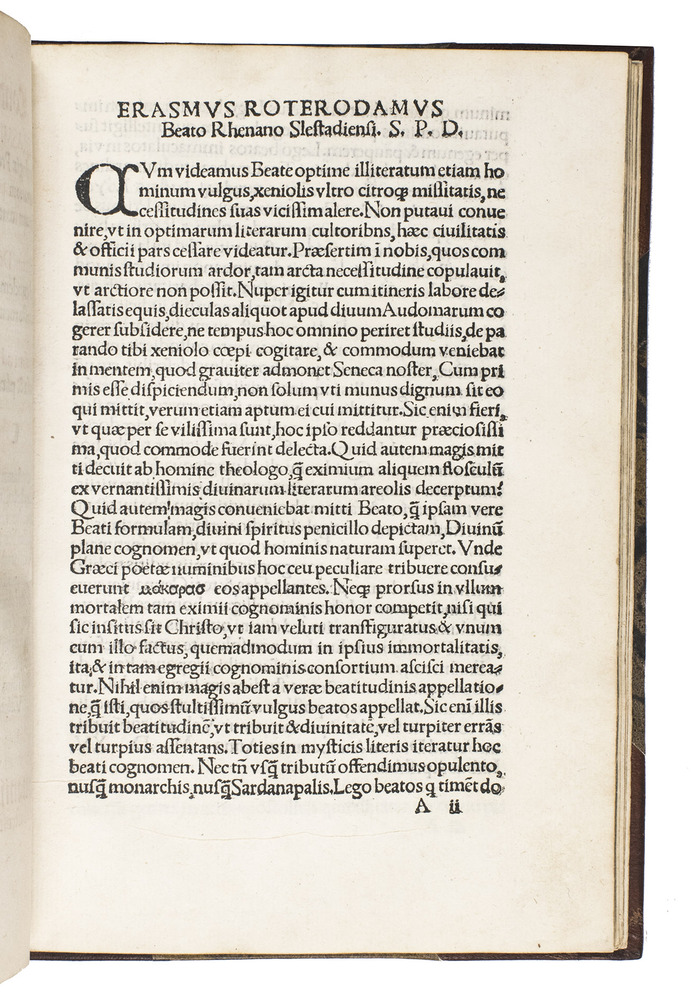 ERASMVS ROTERODAMVS
Beato Rhenano Slestadiensi. S. P. D.
CVm videamus Beate optime illiteratum etiam ho
minum vulgus,xeniolis vltro citroqꝫ missitatis, ne
cessitudines suas vicissim alere. Non putaui conue
nire,vt in optimarum literarum cultoribns, hæc ciuilitatis
& officii pars cessare videatur. Præsertim ī nobis,quos com
munis studiorum ardor,tam arcta necessitudine copulauit,
vt arctiore non possit. Nuper igitur cum itineris labore de⸗
lassatis equis,dieculas aliquot apud diuum Audomarum co
gerer subsidere,ne tempus hoc omnino periret studiis,de pa
rando tibi xeniolo cœpi cogitare, & commodum veniebat
in mentem,quod grauiter admonet Seneca noster, Cum pri
mis esse dispiciendum,non solum vti munus dignum sit eo
qui mittit,verum etiam aptum ei cui mittitur. Sic enim fieri,
vt quæ per se vilissima sunt,hoc ipso reddantur præciosissi
ma,quod commode fuerint delecta. Quid autem magis mit
ti decuit ab homine theologo,q̃ eximium aliquem flosculū
ex vernantissimis diuinarum literarum areolis decerptum?
Quid autem magis conueniebat mitti Beato,q̃ ipsam vere
Beati formulam,diuini spiritus penicillo depictam,Diuinū
plane cognomen,vt quod hominis naturam superet. Vnde
Græci poëtæ numinibus hoc ceu peculiare tribuere consu⸗
euerunt μάκαρασ eos appellantes. Neqꝫ prorsus in vllum
mortalem tam eximii cognominis honor competit,nisi qui
sic insitus sit Christo,vt iam veluti transfiguratus & vnum
cum illo factus, quemadmodum in ipsius immortalitatis,
ita,& in tam egregii cognominis consortium ascisci merea⸗
tur. Nihil enim magis abest a veræ beatitudinis appellatio⸗
ne,q̃ isti,quos stultissimū vulgus beatos appellat. Sic enī illis
tribuit beatitudinē,vt tribuit & diuinitatē,vel turpiter errās
vel turpius assentans. Toties in mysticis literis iteratur hoc
beati cognomen. Nec tñ vsq̃ tributū offendimus opulento,
nusq̃ monarchis,nusq̃ Sardanapalis. Lego beatos q timēt do⸗
A ii